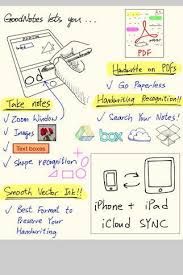 GoodNotes lets you ...
PDF
Handwrite on PDFs
✓ Go Paperless
Take notes
✓ Zoom Window
✓ Images
Text boxes
✓ Shape recognition
Handwriting Recognition!!
✓ Search Your Notes!
box
Smooth Vector Ink!!
✓ Best Format to
Preserve Your
Handwriting
iPhone + iPad
iCloud SYNC